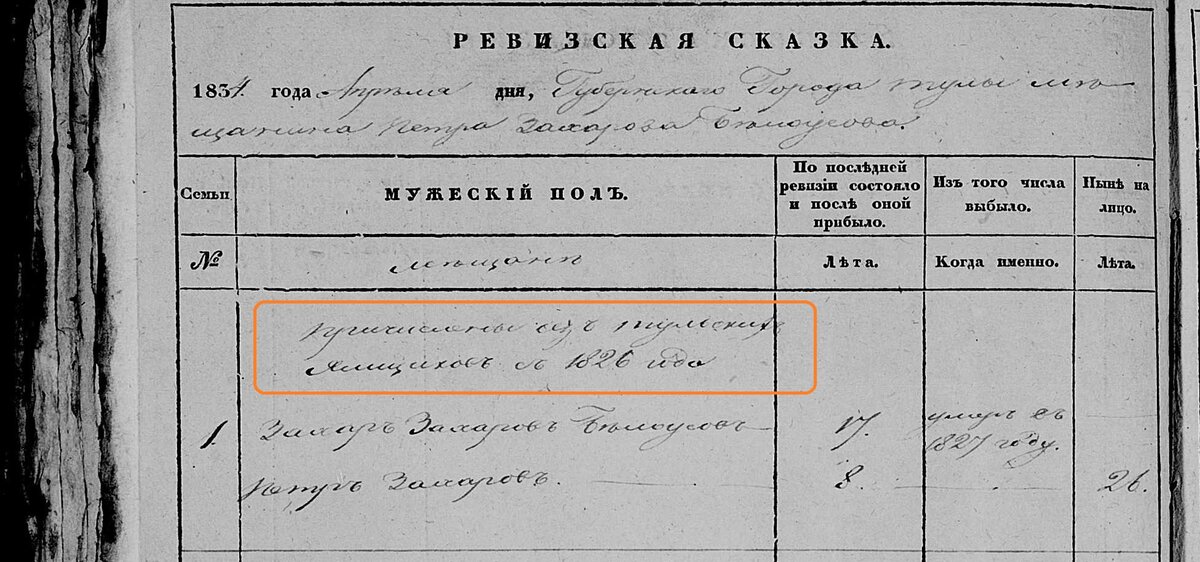 РЕВИЗСКАЯ СКАЗКА.
1834. года Апреля дня, Губернскаго Города тулы мѣ-
щанина Петра Захарова Бѣлоусова.
Семьи
МУЖЕСКІЙ ПОЛЪ.
По послѣдней
ревизіи состояло
и послѣ оной
прибыло.
Изъ того числа
выбыло.
Нынѣ на
лицо.
№
мѣщане
Лѣта.
Когда именно.
Лѣта.
причислены изъ тульскихъ
Ямщиковъ съ 1826 года
1. Захаръ Захаровъ Бѣлоусовъ 17. умеръ въ
1827 году.
Петръ Захаровъ. 8. 26.